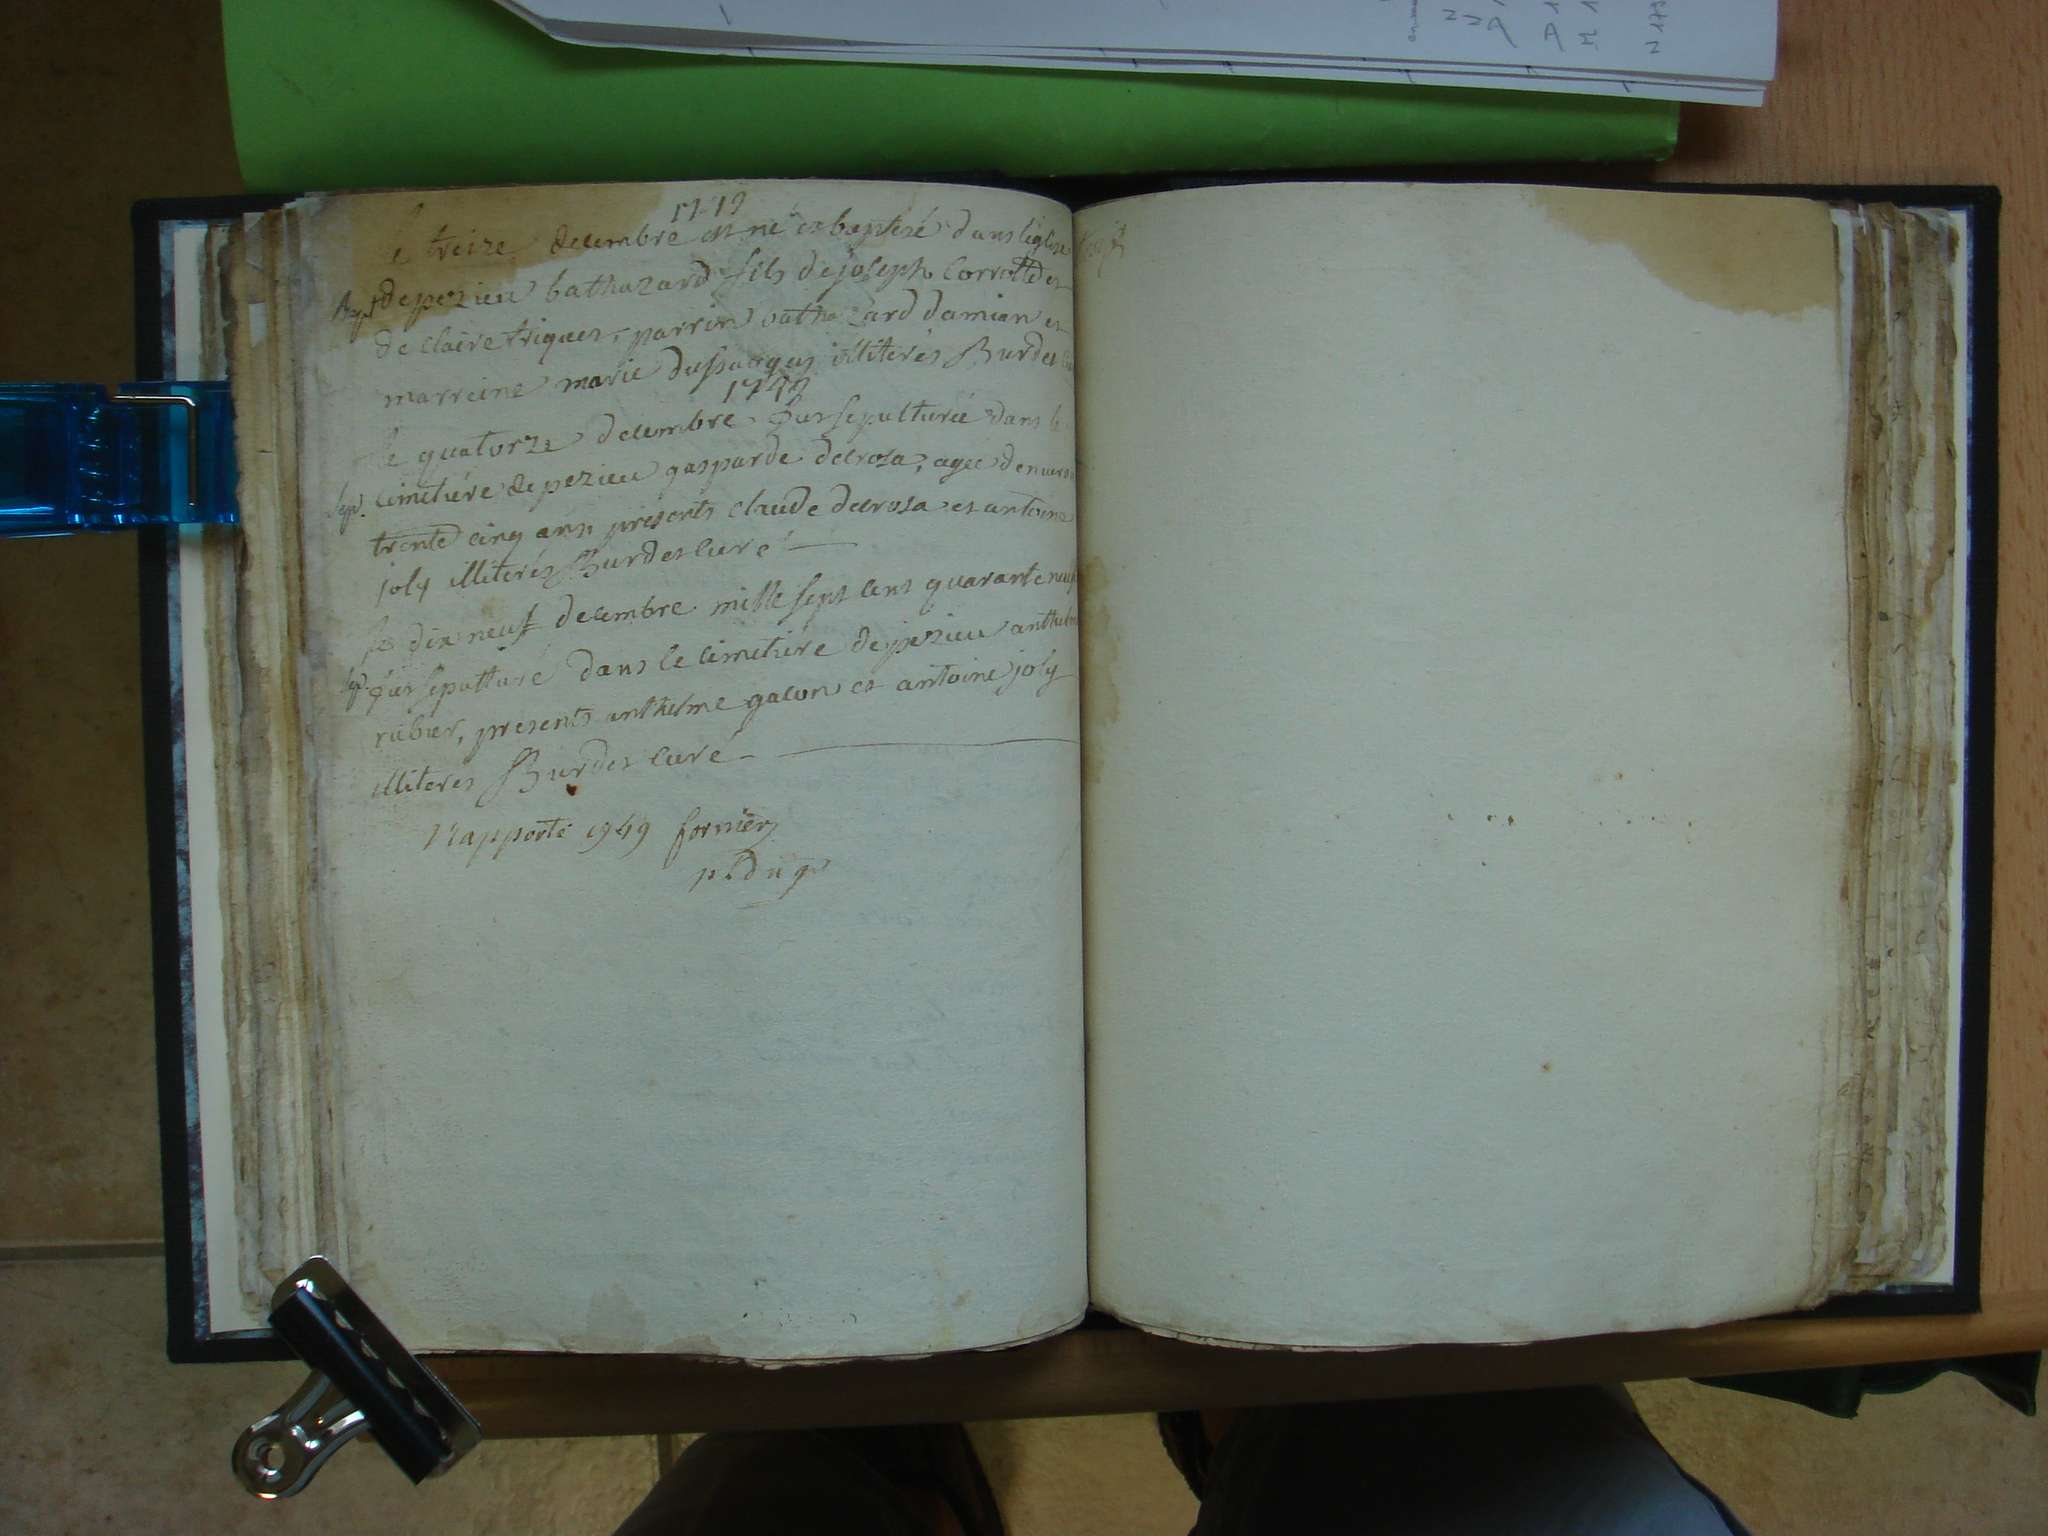 1749
le treize decembre est né et baptisé dans leglise
Bapt. de pezieu bathazard fils de joseph Corrolld et
de claire triquet, parrin bathazard damian et
marreine marie dussuaques illiterés Burdet
1749
le quatorze decembre fut sepulturée dans le
sep. cimetiére de pezieu gasparde decrosa, agée denviron
trente cinq ans presents claude decrosa et antoine
joly illiterés Burdet curé
le dix neuf decembre mille sept cent quarante neuf
sep. fut sepulturé dans le cimetiére de pezieu anthelme
rubier, presents anthelme galon et antoine joly
illiterés Burdet curé
Rapporté 1749 fornier
p. du g